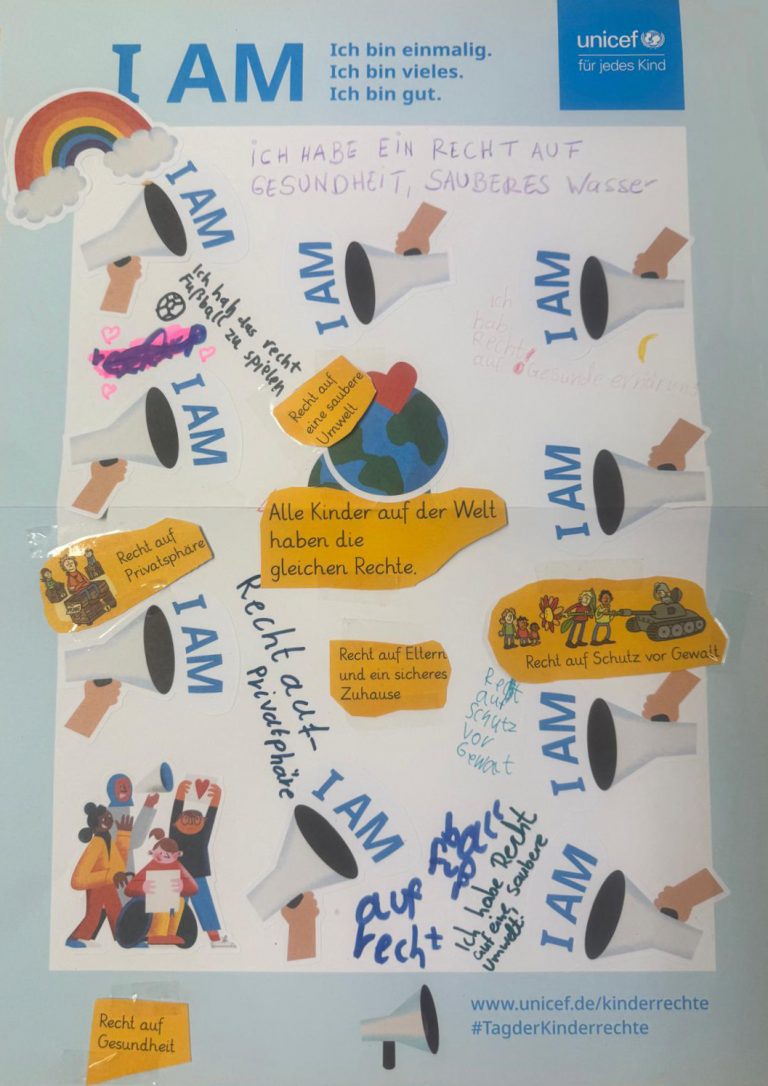 I AM
Ich bin einmalig.
Ich bin vieles.
Ich bin gut.
unicef
für jedes Kind
ICH HABE EIN RECHT AUF
GESUNDHEIT, SAUBERES Wasser
I AM
I AM
I AM
Ich hab das recht
Fußball zu spielen
ich
hab
Recht
auf Gesunde ernärung
I AM
Recht auf
eine saubere
Umwelt
I AM
Alle Kinder auf der Welt
haben die
gleichen Rechte.
Recht auf
Privatsphäre
I AM
Recht auf
Privatphäre
Recht auf Eltern
und ein sicheres
Zuhause
Recht auf Schutz vor Gewalt
Recht
auf
Schutz
vor
Gewalt
I AM
I AM
auf
recht
Ich habe Recht
auf eine saubere
Umwelt!
I AM
Recht auf
Gesundheit
www.unicef.de/kinderrechte
#TagderKinderrechte